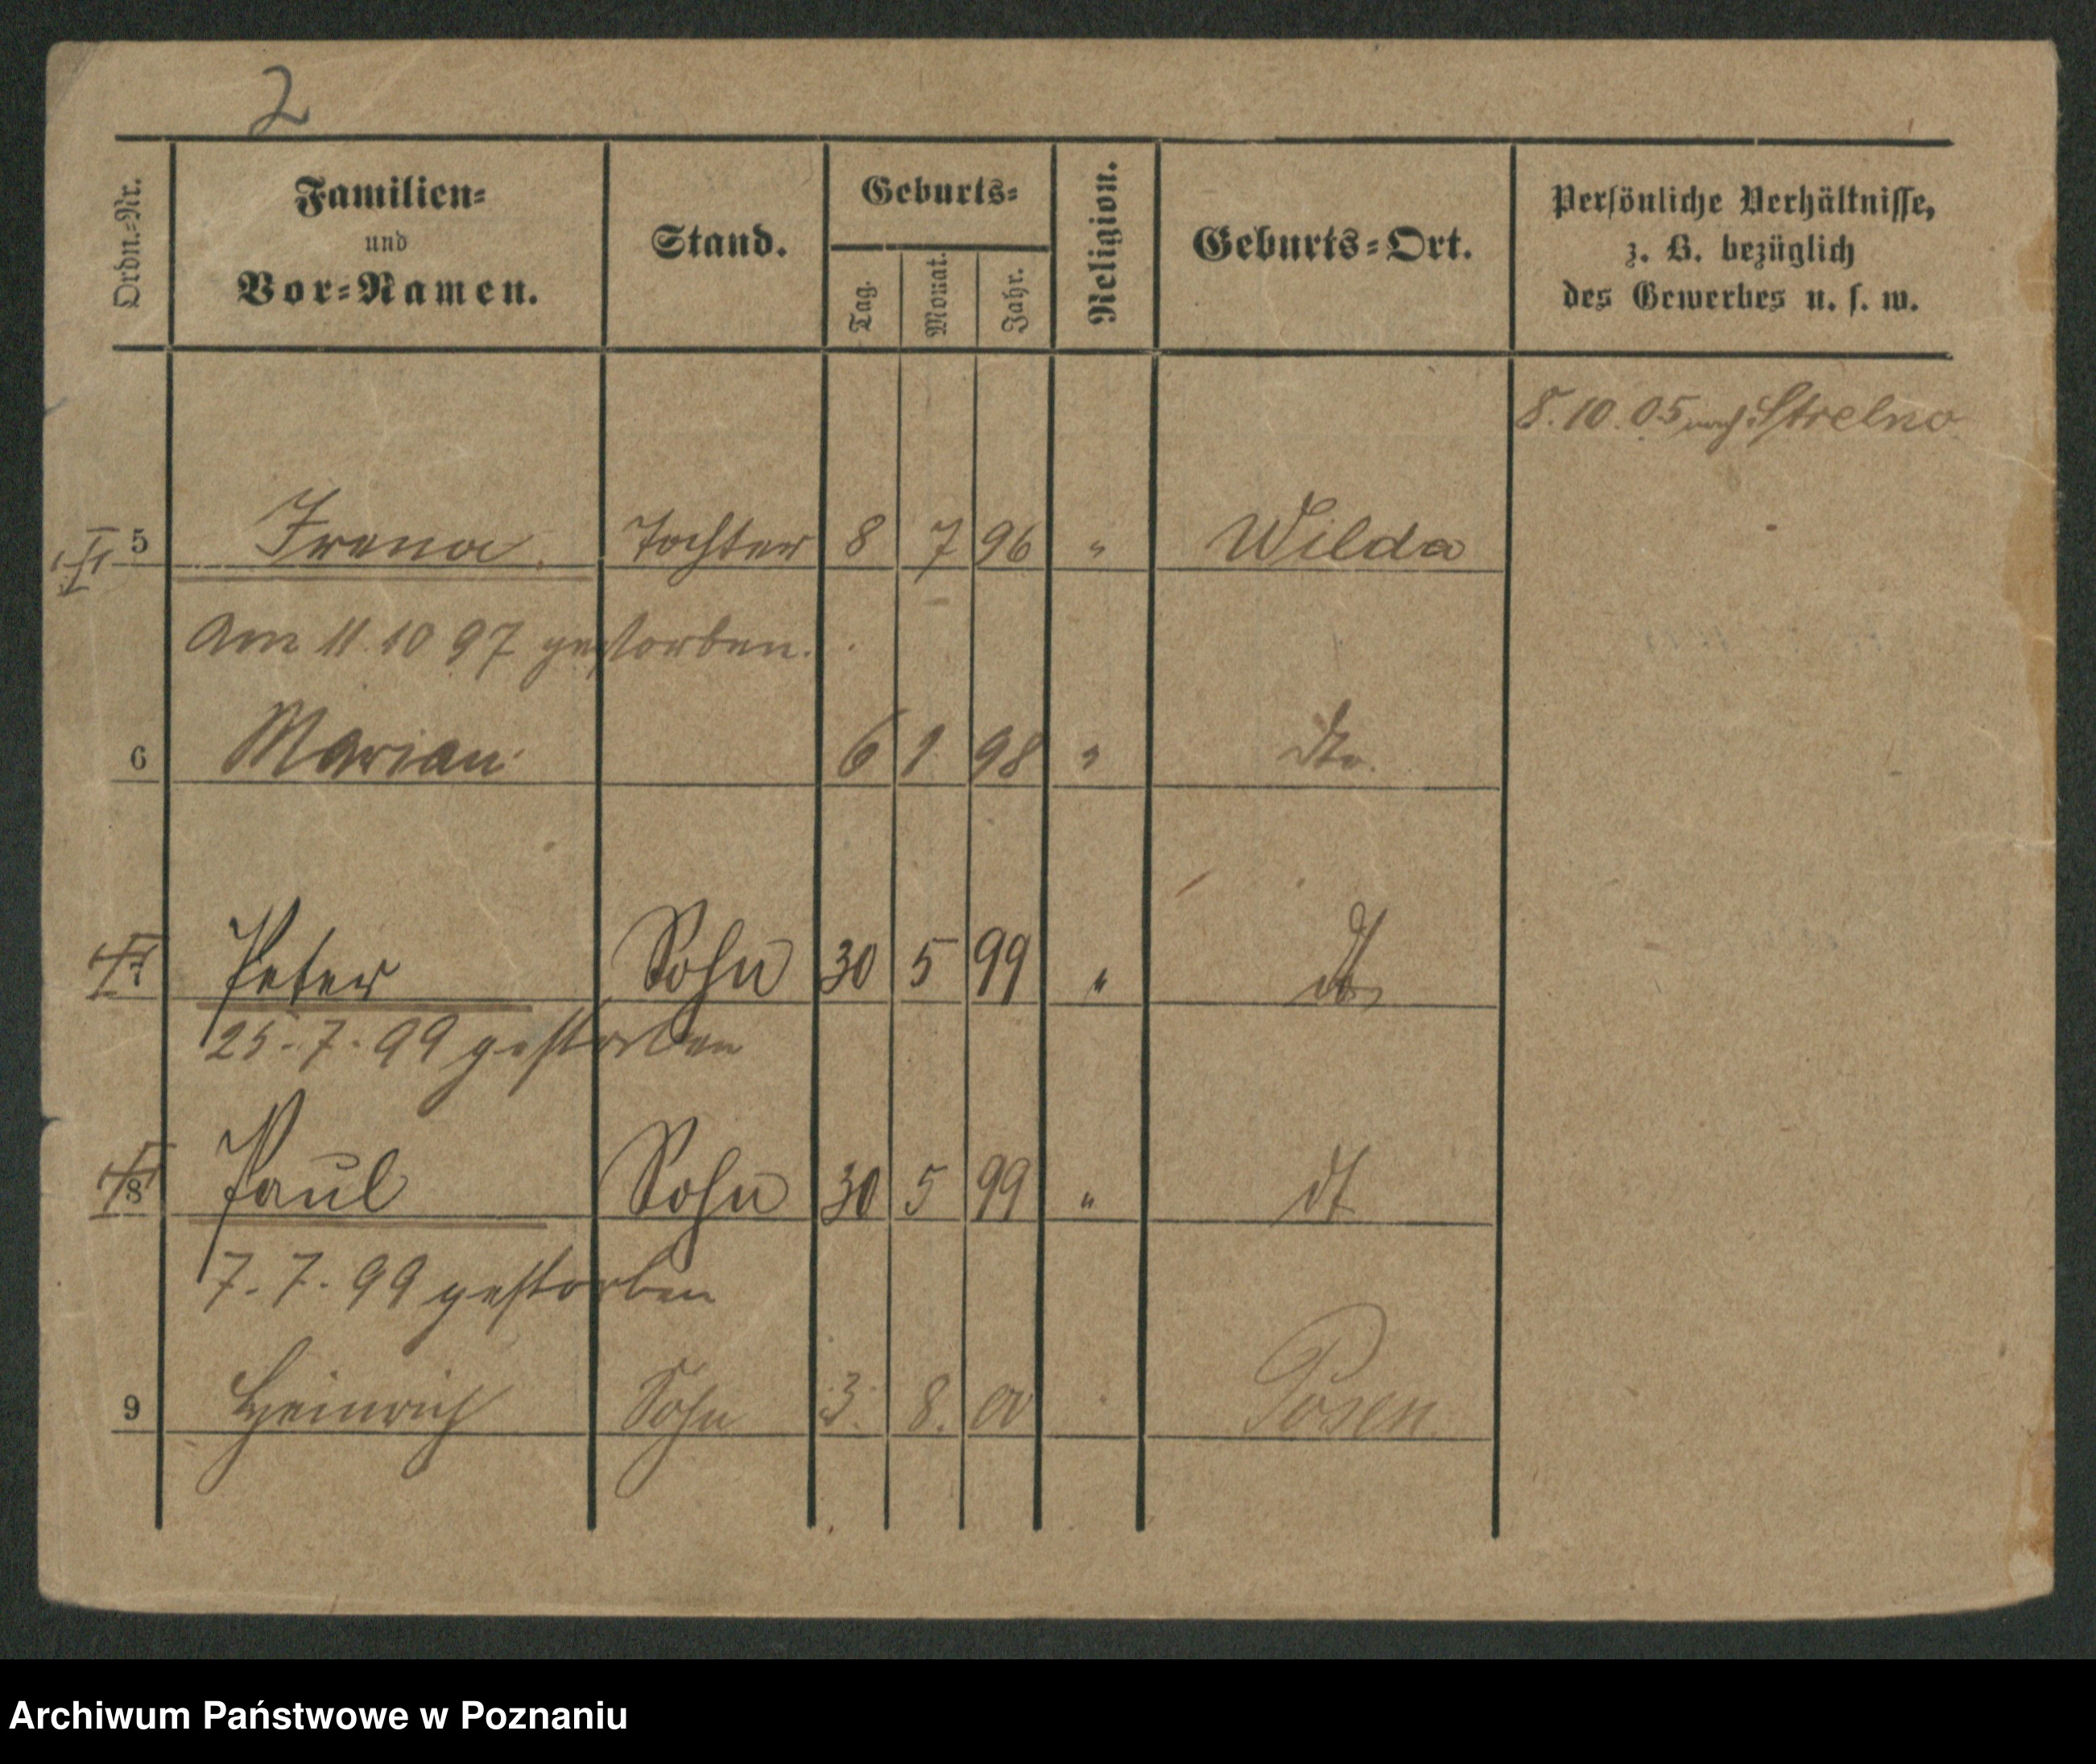 2
Ordn.-Nr.
Familien-
und
Vor-Namen.
Stand.
Geburts-
Tag.
Monat.
Jahr.
Religion.
Geburts-Ort.
Persönliche Verhältnisse,
z. B. bezüglich
des Gewerbes u. s. w.
8.10.05 nach Strelno
5 Irena Tochter 8 7 96 " Wilda
Am 11 10 97 gestorben.
6 Marian 6 1 98 " dto.
7 Peter Sohn 30 5 99 " dto
25.7.99 gestorben
8 Paul Sohn 30 5 99 " dt
7.7.99 gestorben
9 Heinrich Sohn 3. 8. 00 Posen
Archiwum Państwowe w Poznaniu